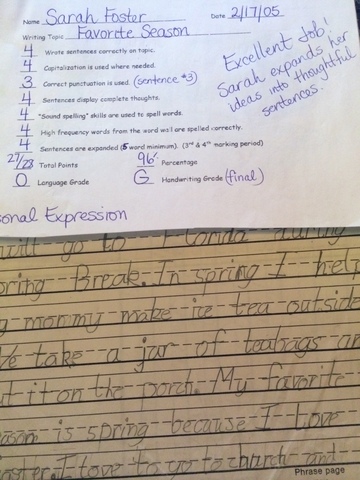 Name Sarah Foster Date 2/17/05
Writing Topic Favorite Season
4 Wrote sentences correctly on topic.
4 Capitalization is used where needed.
3 Correct punctuation is used. (sentence #3)
4 Sentences display complete thoughts.
4 "Sound spelling" skills are used to spell words.
4 High frequency words from the word wall are spelled correctly.
4 Sentences are expanded (5 word minimum). (3rd & 4th marking period)
27/28 Total Points 96 Percentage
O Language Grade G Handwriting Grade (final)
Excellent Job!
Sarah expands her
ideas into thoughtful
sentences.
sonal Expression
will go to Florida during
pring Break. In spring I help
y mommy make ice tea outside
We take a jar of teabags an
ut it on the porch. My favorite
eason is spring because I love
aster. I love to go to church and
Phrase page